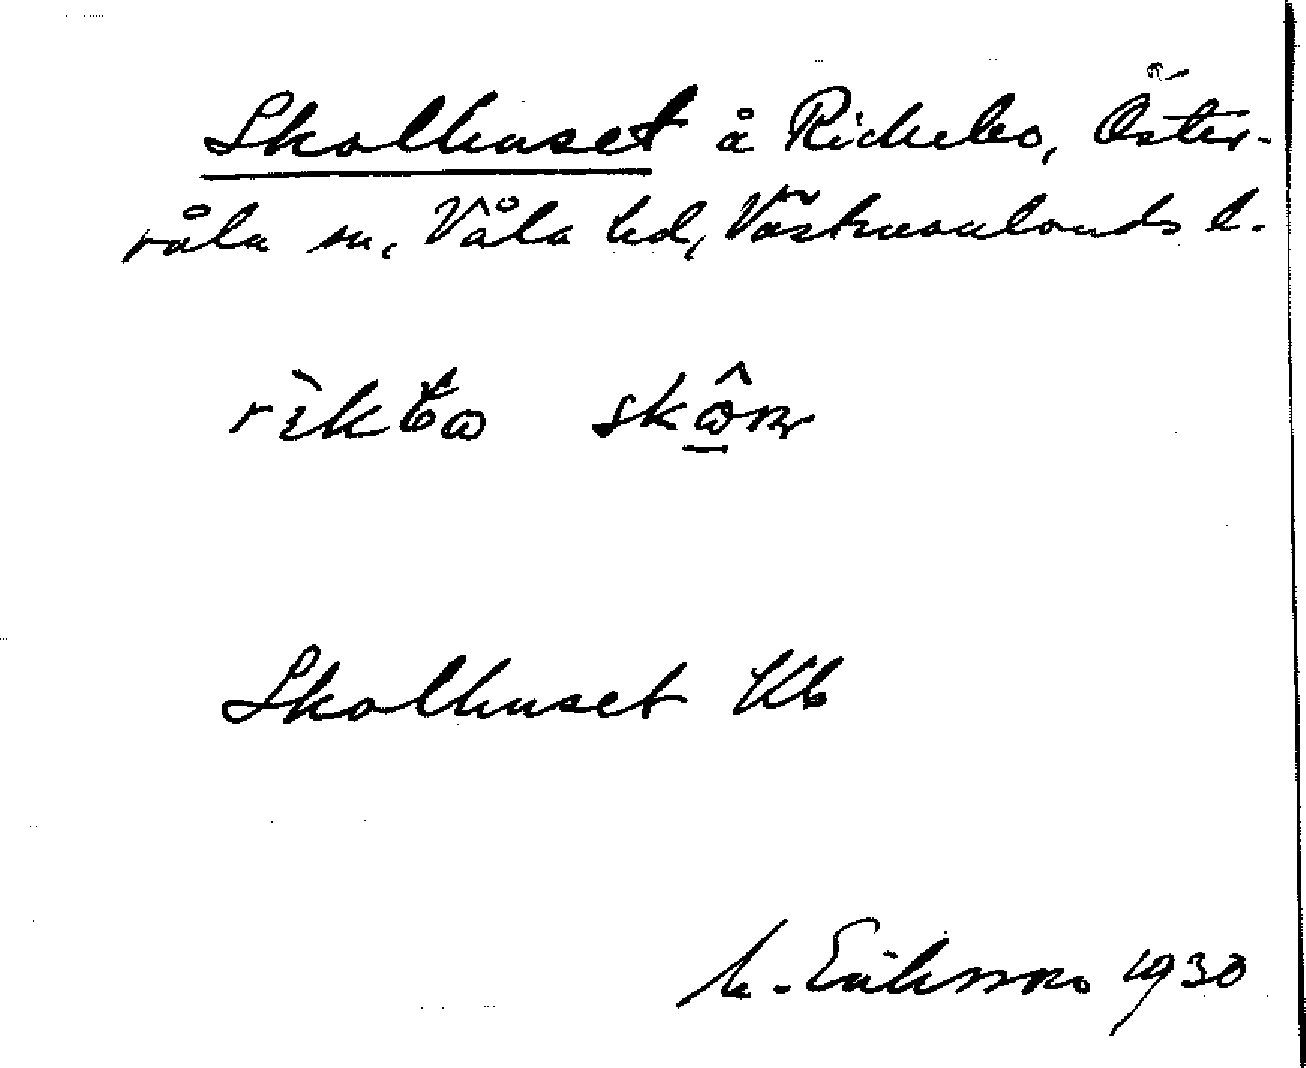 Skolhuset å Rickebo, Öster-
våla sn, Våla hd, Västmanlands l.
Skolhuset Kb
M. Eriksson 1930